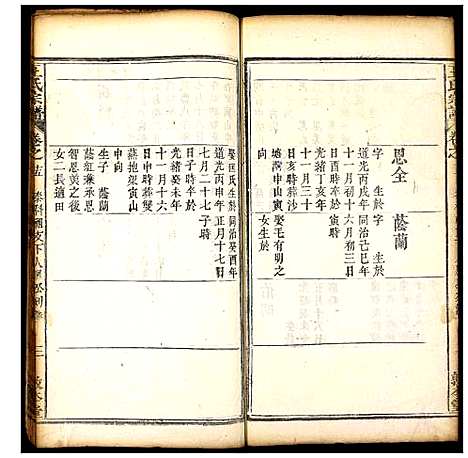 王氏宗譜
卷之
恩全
字 生於
道光丙戌年
十一月初十
子時卒於
光緒丁亥年
十一月三十
日亥時葬
塆灣申山寅
向
蔭蘭
字 生於
同治己巳年
六月初三日
寅時
娶毛有明之
女生於
敦本堂
王氏宗譜
卷之
娶田氏生於
道光丙申年
七月二十七
子時卒於
光緒癸未年
十一月十六
日申時葬雙
燕抱梁寅山
申向
生子 蔭蘭
蔭紅兼承恩
智恩美之後
女二長適田
同治癸酉年
正月十七日
子時
三
敦本堂